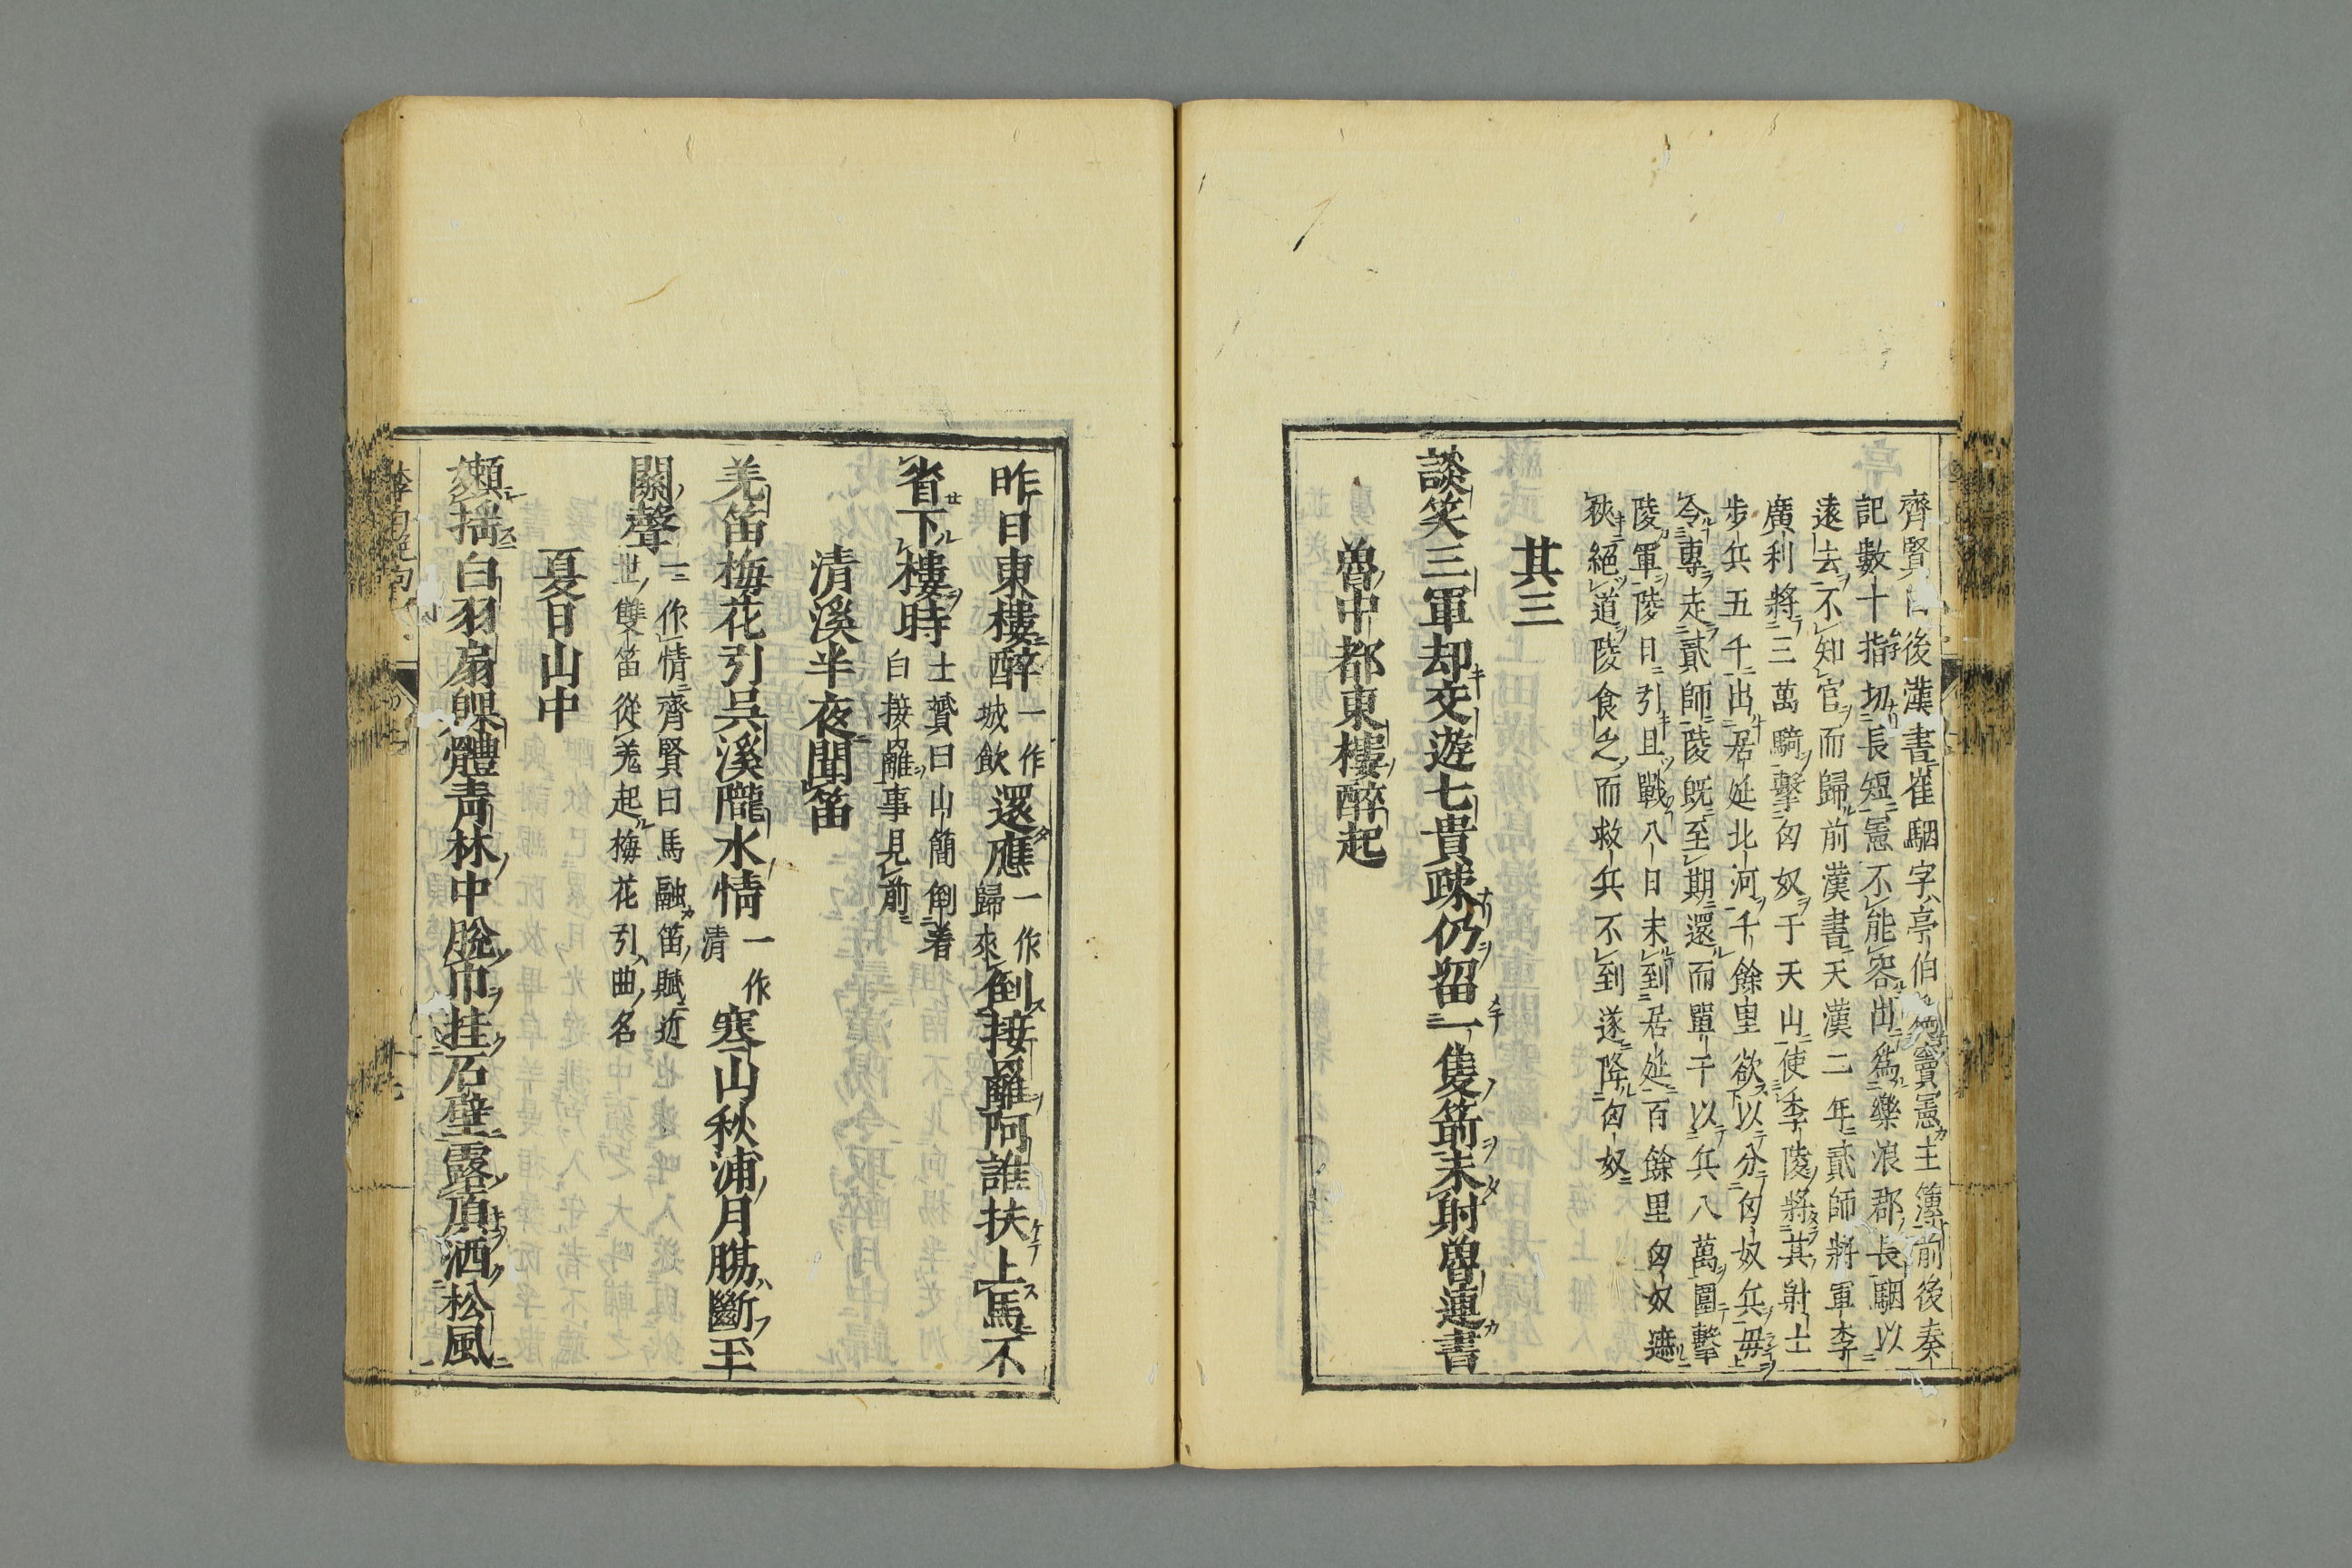 齊賢曰後漢書崔駰字亭伯爲竇憲主簿前後奏
記數十指切長短憲不能容出爲樂浪郡長駰以
遠去不知官而歸前漢書天漢二年貳師將軍李
廣利將三萬騎擊匈奴于天山使李陵將其射士
步兵五千出居延北河千餘里欲以分匈奴兵毋
令專走貳師陵既至期還而單于以兵八萬圍擊
陵軍陵日引且戰八日未到居延百餘里匈奴遮
狹絕道陵食乏而救兵不到遂降匈奴
其三
談笑三軍却交遊七貴疎仍留一隻箭未射魯連書
魯中都東樓醉起
昨日東樓醉一作城飲還應一作歸來倒接䍦阿誰扶上馬不
省下樓時士贇曰山簡倒着白接䍦事見前
清溪半夜聞笛
羌笛梅花引吳溪隴水情一作清寒山秋浦月腸斷玉
關聲一作情齊賢曰馬融笛賦近世雙笛從羌起梅花引曲名
夏日山中
嬾搖白羽扇躶體青林中脫巾挂石壁露頂洒松風
李白絕句